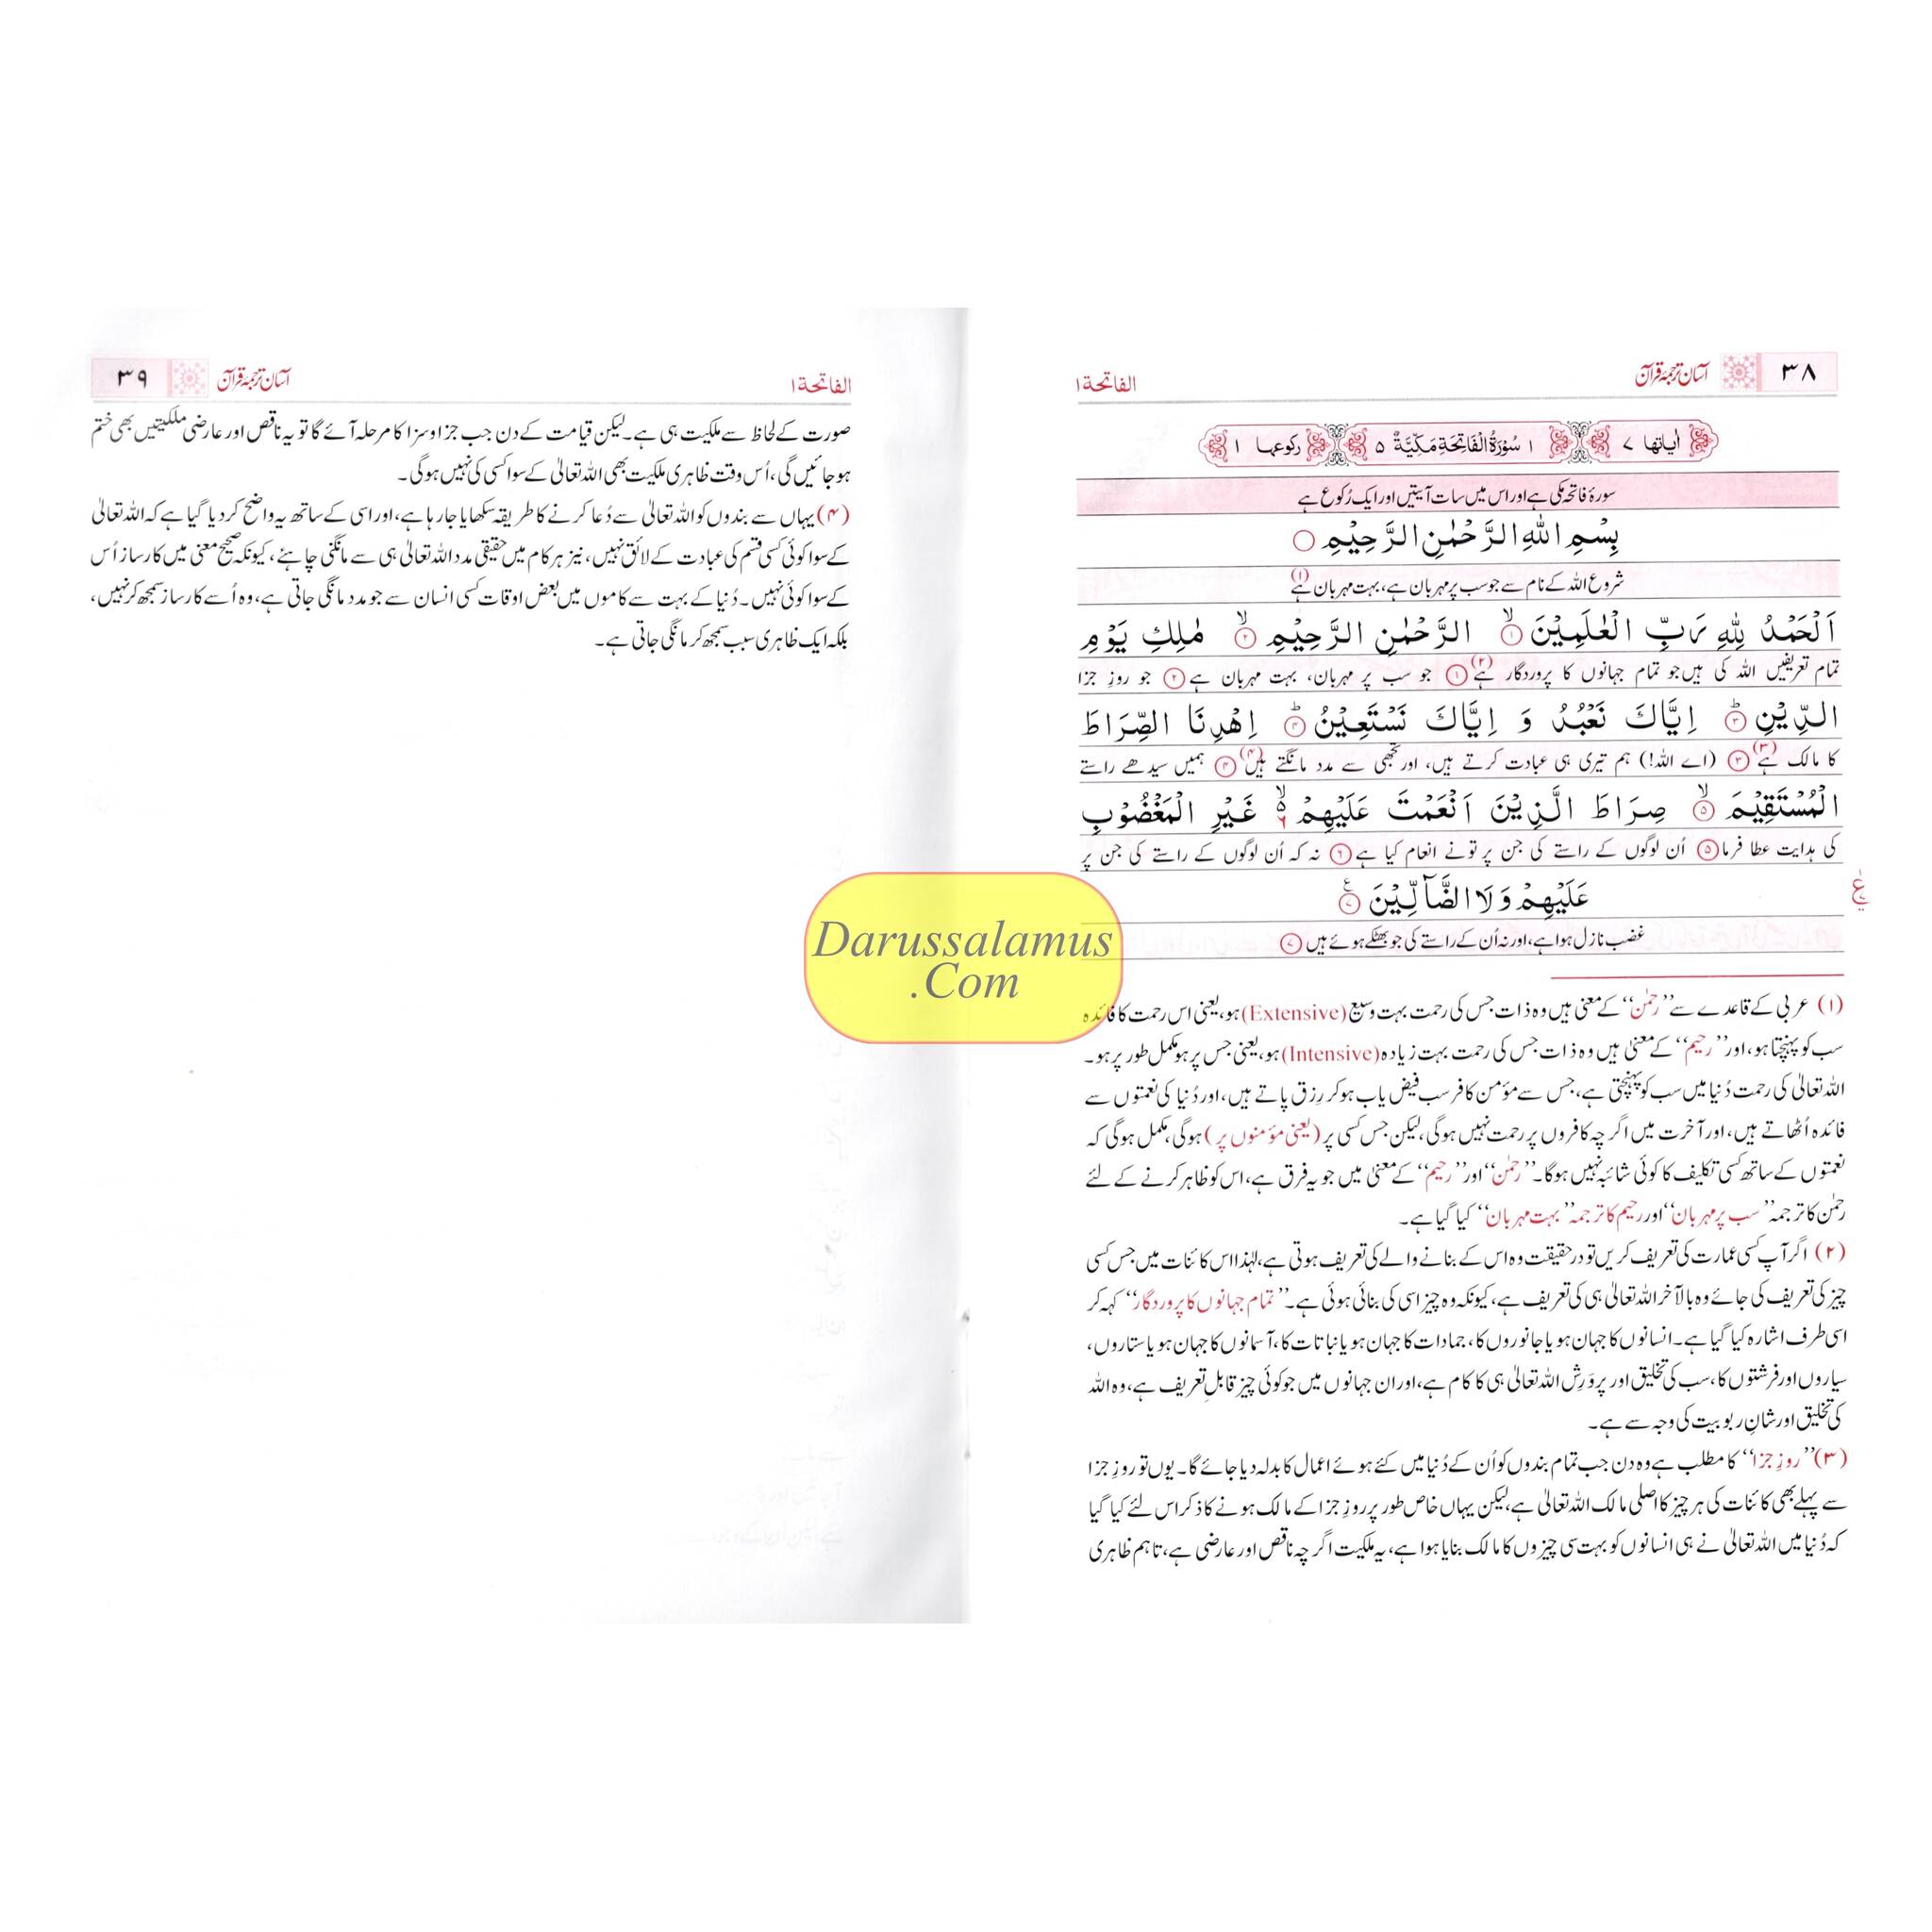 ۳۸ آسان ترجمۂ قرآن الفاتحة ۱
اٰیاتها ۷ ۱ سُوْرَةُ الْفَاتِحَةِ مَكِّيَّةٌ ۵ رکوعها ۱
سورۂ فاتحہ مکی ہے اور اس میں سات آیتیں اور ایک رُکوع ہے
بِسْمِ اللّٰهِ الرَّحْمٰنِ الرَّحِيْمِ
شروع اللہ کے نام سے جو سب پر مہربان ہے، بہت مہربان ہے (۱)
اَلْحَمْدُ لِلّٰهِ رَبِّ الْعٰلَمِيْنَ ۙ۱ الرَّحْمٰنِ الرَّحِيْمِ ۙ۲ مٰلِكِ يَوْمِ
تمام تعریفیں اللہ کی ہیں جو تمام جہانوں کا پروردگار ہے (۲) ۱ جو سب پر مہربان، بہت مہربان ہے ۲ جو روزِ جزا
الدِّيْنِ ؕ۳ اِيَّاكَ نَعْبُدُ وَ اِيَّاكَ نَسْتَعِيْنُ ؕ۴ اِهْدِنَا الصِّرَاطَ
کا مالک ہے (۳) ۳ (اے اللہ!) ہم تیری ہی عبادت کرتے ہیں، اور تجھی سے مدد مانگتے ہیں (۴) ۴ ہمیں سیدھے راستے
الْمُسْتَقِيْمَ ۙ۵ صِرَاطَ الَّذِيْنَ اَنْعَمْتَ عَلَيْهِمْ ۙ۬۶ غَيْرِ الْمَغْضُوْبِ
کی ہدایت عطا فرما ۵ اُن لوگوں کے راستے کی جن پر تونے انعام کیا ہے ۶ نہ کہ اُن لوگوں کے راستے کی جن پر
عَلَيْهِمْ وَلَا الضَّآلِّيْنَ ۷ ع
غضب نازل ہوا ہے، اور نہ اُن کے راستے کی جو بھٹکے ہوئے ہیں ۷
(۱) عربی کے قاعدے سے ’’رحمٰن‘‘ کے معنی ہیں وہ ذات جس کی رحمت بہت وسیع (Extensive) ہو، یعنی اس رحمت کا فائدہ
سب کو پہنچتا ہو، اور ’’رحیم‘‘ کے معنیٰ ہیں وہ ذات جس کی رحمت بہت زیادہ (Intensive) ہو، یعنی جس پر ہو مکمل طور پر ہو۔
اللہ تعالیٰ کی رحمت دُنیا میں سب کو پہنچتی ہے، جس سے مؤمن کافر سب فیض یاب ہوکر رِزق پاتے ہیں، اور دُنیا کی نعمتوں سے
فائدہ اُٹھاتے ہیں، اور آخرت میں اگرچہ کافروں پر رحمت نہیں ہوگی، لیکن جس کسی پر (یعنی مؤمنوں پر) ہوگی، مکمل ہوگی کہ
نعمتوں کے ساتھ کسی تکلیف کا کوئی شائبہ نہیں ہوگا۔ ’’رحمٰن‘‘ اور ’’رحیم‘‘ کے معنیٰ میں جو یہ فرق ہے، اس کو ظاہر کرنے کے لئے
رحمٰن کا ترجمہ ’’سب پر مہربان‘‘ اور رحیم کا ترجمہ ’’بہت مہربان‘‘ کیا گیا ہے۔
(۲) اگر آپ کسی عمارت کی تعریف کریں تو درحقیقت وہ اس کے بنانے والے کی تعریف ہوتی ہے، لہٰذا اس کائنات میں جس کسی
چیز کی تعریف کی جائے وہ بالآخر اللہ تعالیٰ ہی کی تعریف ہے، کیونکہ وہ چیز اسی کی بنائی ہوئی ہے۔ ’’تمام جہانوں کا پروردگار‘‘ کہہ کر
اسی طرف اشارہ کیا گیا ہے۔ انسانوں کا جہان ہو یا جانوروں کا، جمادات کا جہان ہو یا نباتات کا، آسمانوں کا جہان ہو یا ستاروں،
سیاروں اور فرشتوں کا، سب کی تخلیق اور پروَرِش اللہ تعالیٰ ہی کا کام ہے، اور ان جہانوں میں جو کوئی چیز قابلِ تعریف ہے، وہ اللہ
کی تخلیق اور شانِ ربوبیت کی وجہ سے ہے۔
(۳) ’’روزِ جزا‘‘ کا مطلب ہے وہ دن جب تمام بندوں کو اُن کے دُنیا میں کئے ہوئے اعمال کا بدلہ دیا جائے گا۔ یوں تو روزِ جزا
سے پہلے بھی کائنات کی ہر چیز کا اصلی مالک اللہ تعالیٰ ہے، لیکن یہاں خاص طور پر روزِ جزا کے مالک ہونے کا ذکر اس لئے کیا گیا
کہ دُنیا میں اللہ تعالیٰ نے ہی انسانوں کو بہت سی چیزوں کا مالک بنایا ہوا ہے، یہ ملکیت اگرچہ ناقص اور عارضی ہے، تاہم ظاہری
۳۹ آسان ترجمۂ قرآن الفاتحة ۱
صورت کے لحاظ سے ملکیت ہی ہے۔ لیکن قیامت کے دن جب جزا و سزا کا مرحلہ آئے گا تو یہ ناقص اور عارضی ملکیتیں بھی ختم
ہوجائیں گی، اُس وقت ظاہری ملکیت بھی اللہ تعالیٰ کے سوا کسی کی نہیں ہوگی۔
(۴) یہاں سے بندوں کو اللہ تعالیٰ سے دُعا کرنے کا طریقہ سکھایا جا رہا ہے، اور اسی کے ساتھ یہ واضح کردیا گیا ہے کہ اللہ تعالیٰ
کے سوا کوئی کسی قسم کی عبادت کے لائق نہیں، نیز ہر کام میں حقیقی مدد اللہ تعالیٰ ہی سے مانگنی چاہئے، کیونکہ صحیح معنی میں کارساز اُس
کے سوا کوئی نہیں۔ دُنیا کے بہت سے کاموں میں بعض اوقات کسی انسان سے جو مدد مانگی جاتی ہے، وہ اُسے کارساز سمجھ کر نہیں،
بلکہ ایک ظاہری سبب سمجھ کر مانگی جاتی ہے۔
Darussalamus
.Com